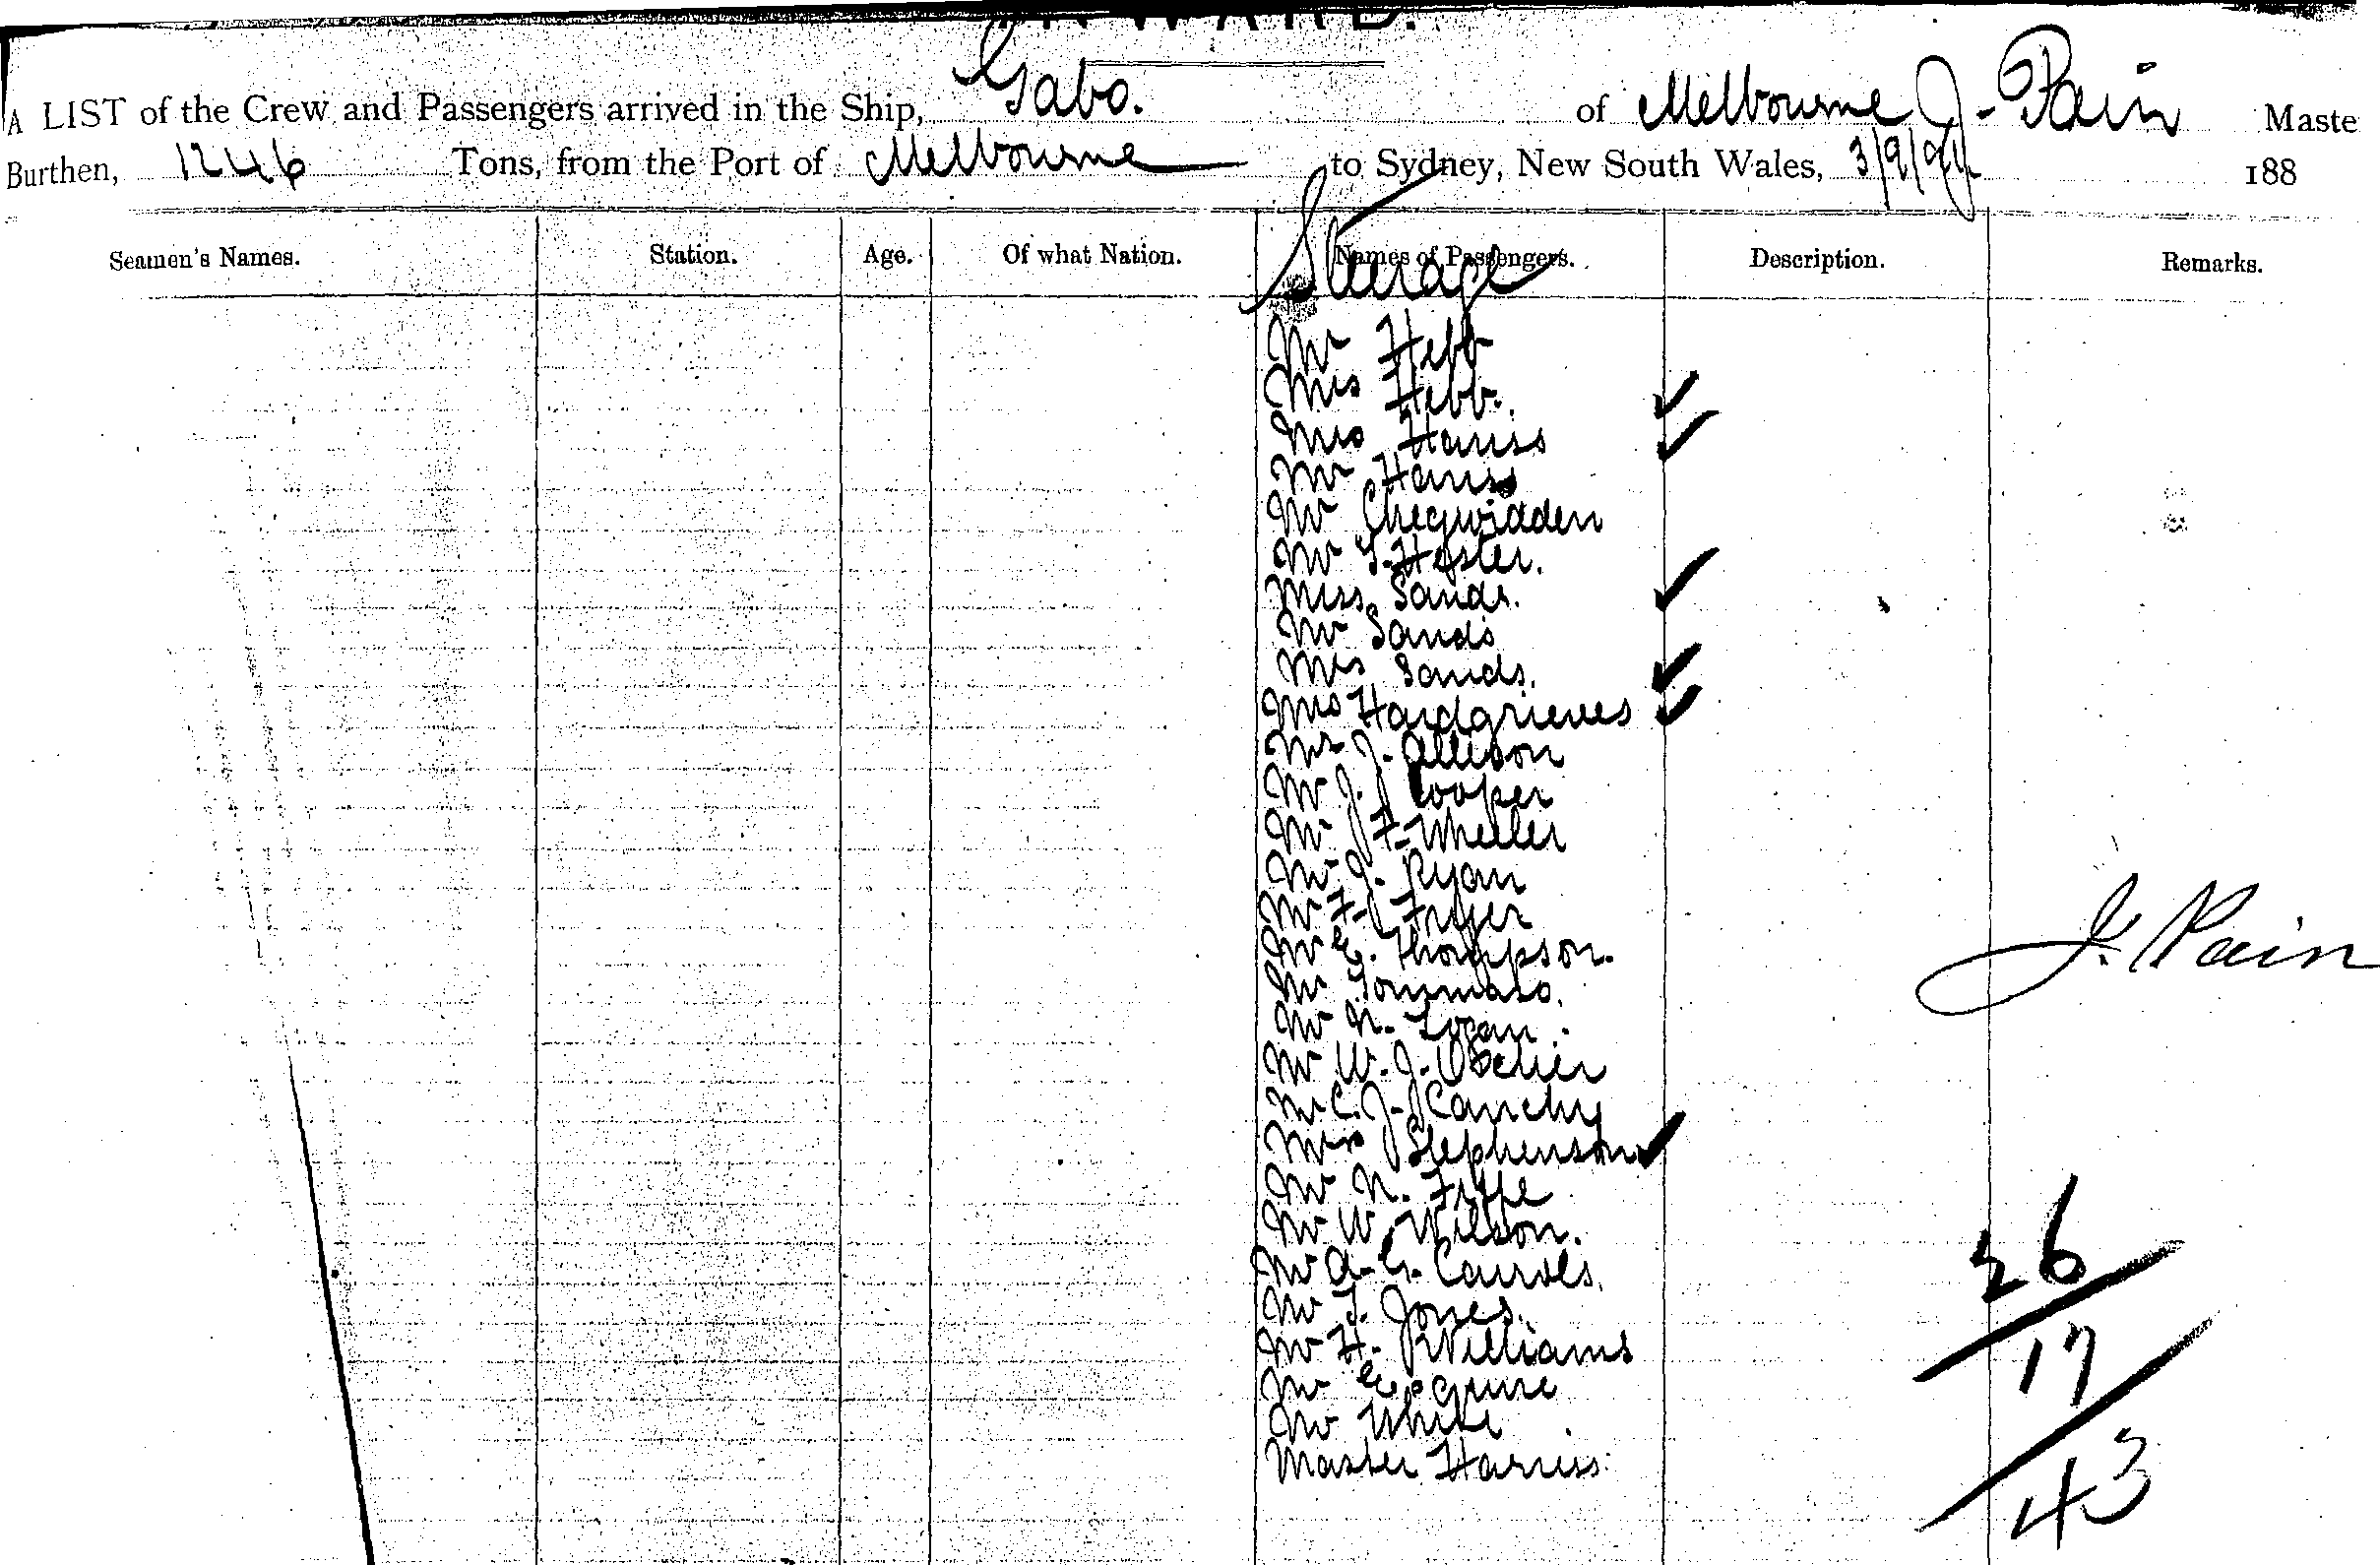 A LIST of the Crew and Passengers arrived in the Ship, Gabo. of Melbourne J. Pain Maste
Burthen, 1246 Tons, from the Port of Melbourne to Sydney, New South Wales, 3/9/94 188
Seamen's Names. Station. Age. Of what Nation. Names of Passengers. Description. Remarks.
Steerage
Mr Hebb
Mrs Hebb.
Mrs Harriss
Mr Harriss
Mr Chegwidden
Mr Hester.
Miss Sands.
Mr Sands
Mrs Sands.
Mrs Hardgrieves
Mr J. Allison
Mr J. Cooper
Mr F. Wheeler
Mr J. Ryan
Mr F. Fryer
Mr E. Thompson.
Mr Tommaso.
Mr N. Logan
Mr W. J.
Mr C. J.
Mrs Stephenson
Mr N. Fyffe
Mr W. Wilson.
Mr A. G. Carrols.
Mr T. Jones.
Mr H. Williams
Mr E.
Mr White
Master Harriss
J. Pain
26
17
43